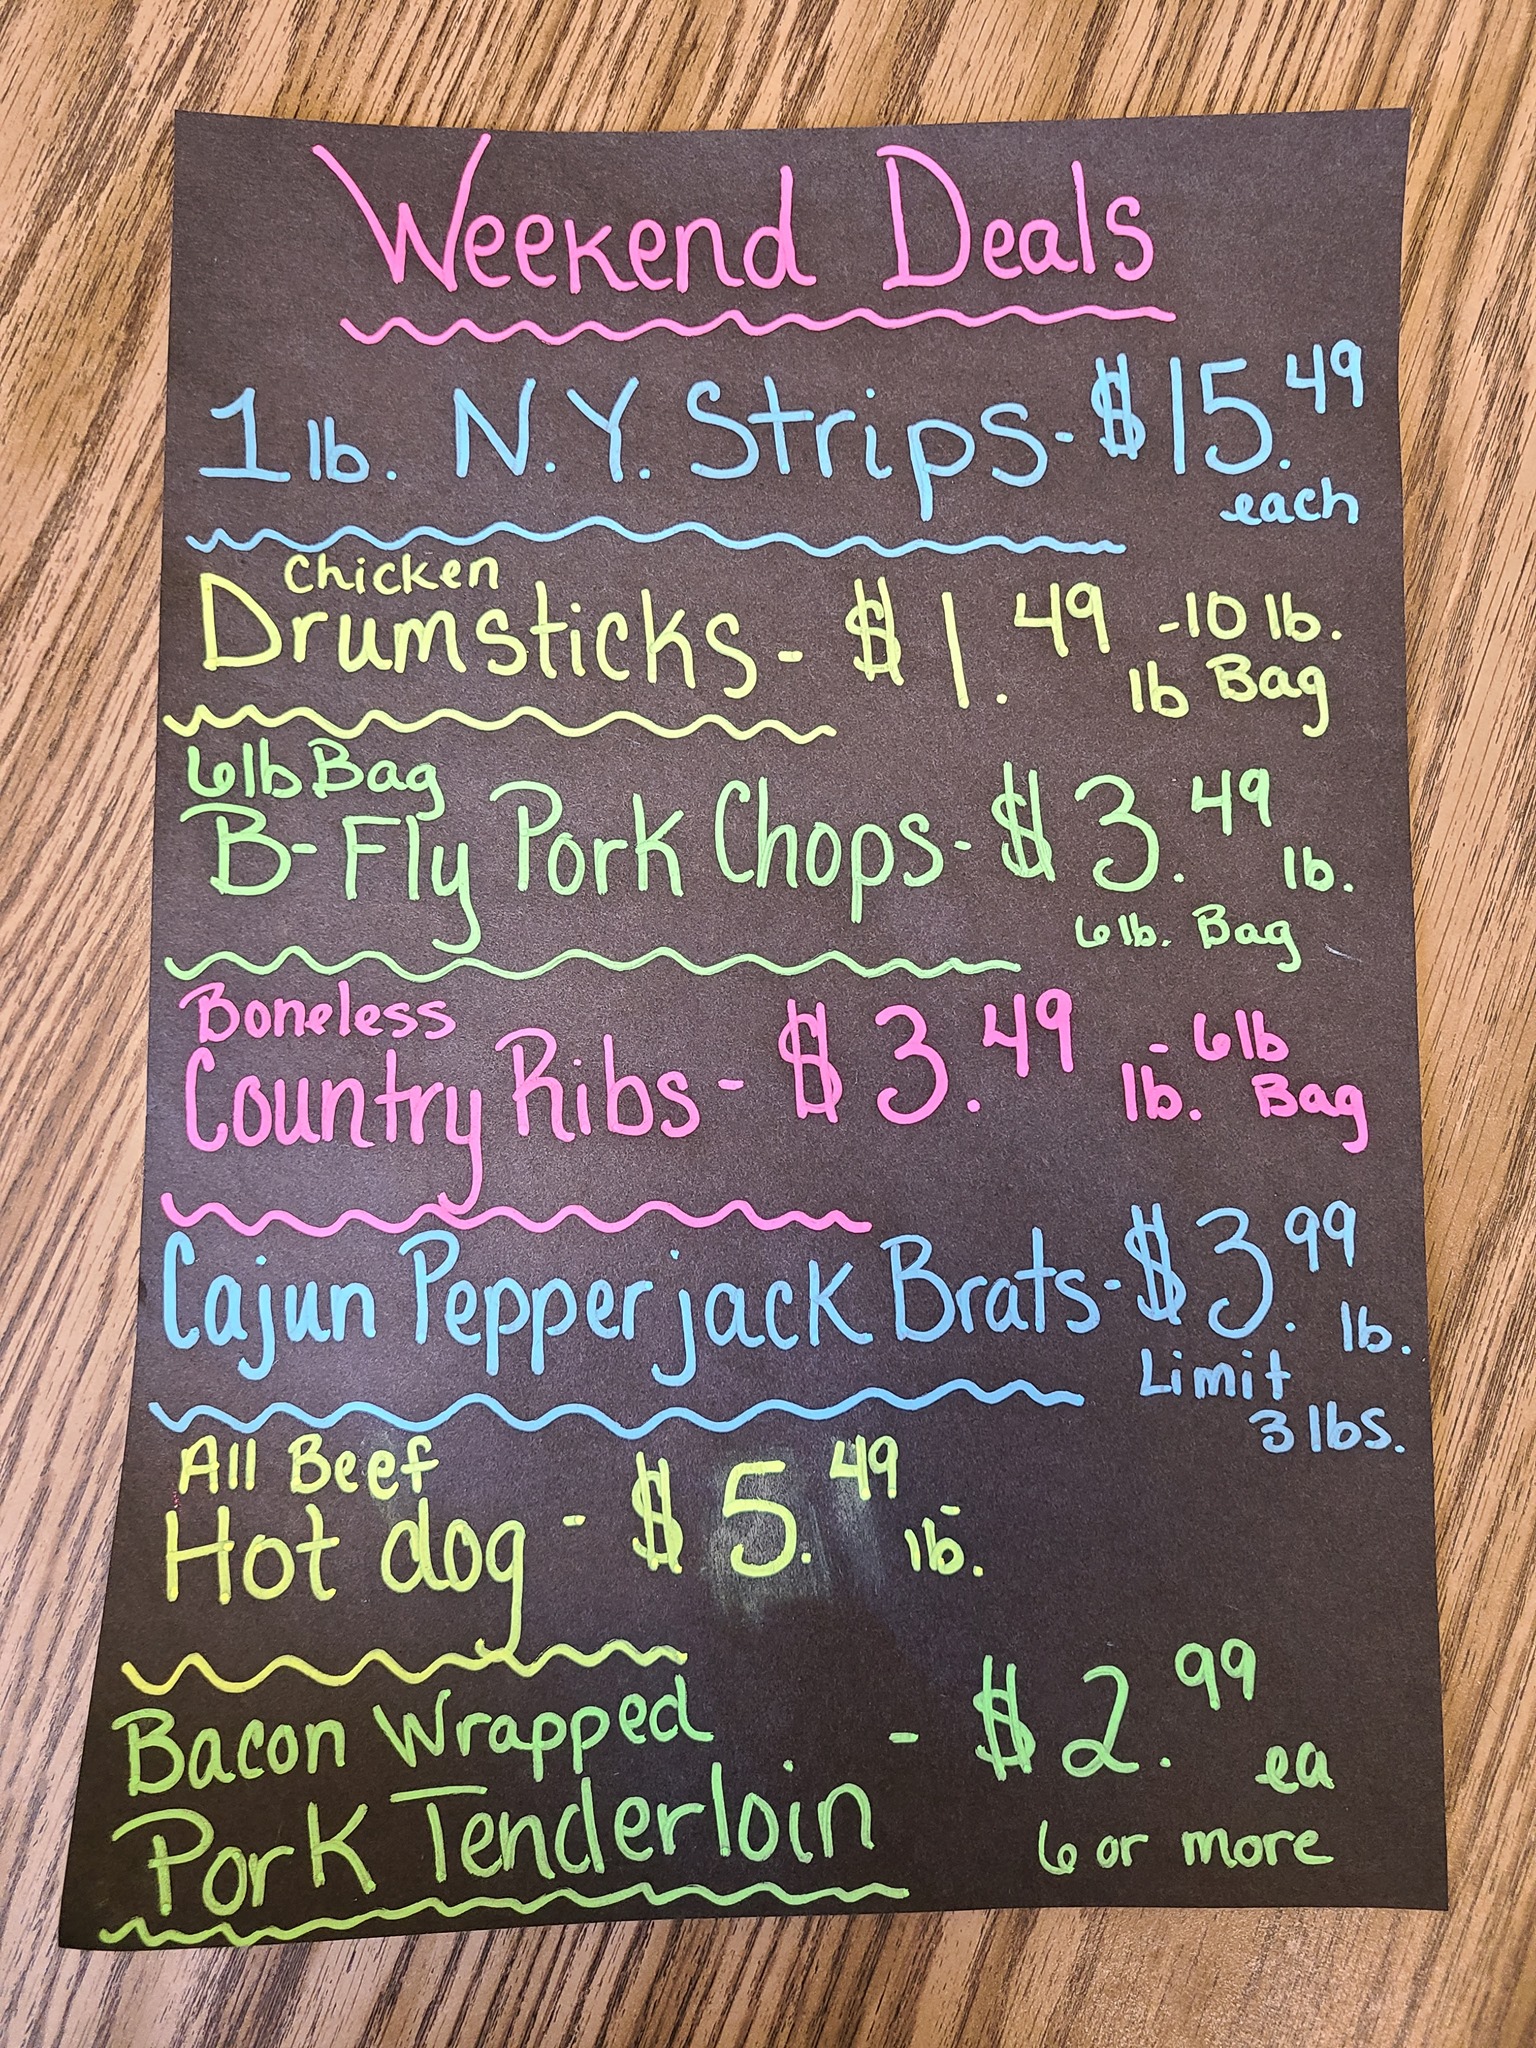 Weekend Deals
1 lb. N.Y. Strips - $15.49
each
Chicken
Drumsticks - $1.49 lb - 10 lb. Bag
6lb Bag
B-Fly Pork Chops - $3.49 lb.
6lb. Bag
Boneless
Country Ribs - $3.49 lb. - 6lb Bag
Cajun Pepperjack Brats - $3.99 lb.
Limit
3 lbs.
All Beef
Hot dog - $5.49 lb.
Bacon Wrapped
Pork Tenderloin - $2.99 ea
6 or more